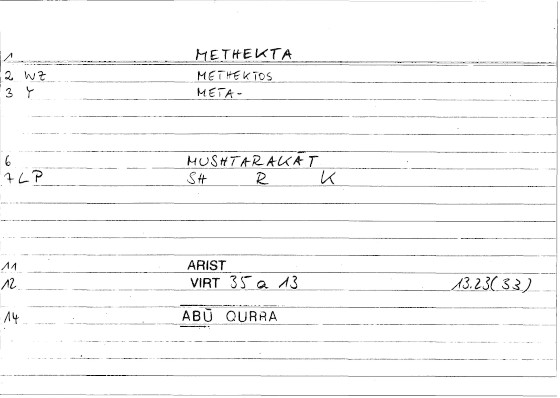 1 METHEKTA
2 WZ METHEKTOS
3 Y META-
6 MUSHTARAKĀT
7 LP SH R K
11 ARIST
12 VIRT 35 a 13 13.23(33)
14 ABŪ QURRA